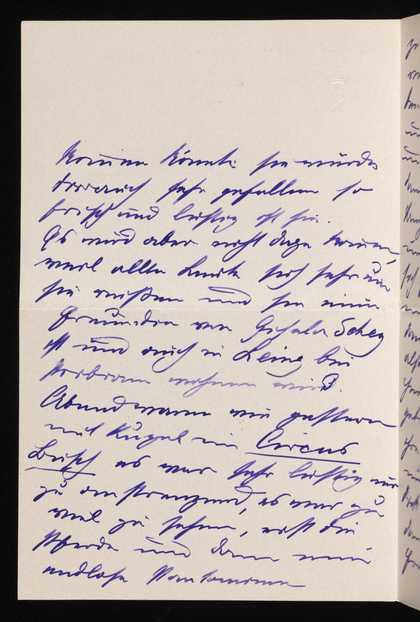 kommen könnte sie würde
dir auch sehr gefallen so
frisch und lustig ist sie.
Es wird aber nicht dazu kommen,
weil alle Leute sich sehr um
sie reißen und sie eine
Freundin von Gisela Schey
ist und auch in Leing bei
wohnen wird
Abend waren wir gestern
mit Kugel im Circus
Busch es war sehr lustig nur
zu anstrengend, es war zu
viel zu sehen, erst die
Pferde und dann eine
endlose Pantomime